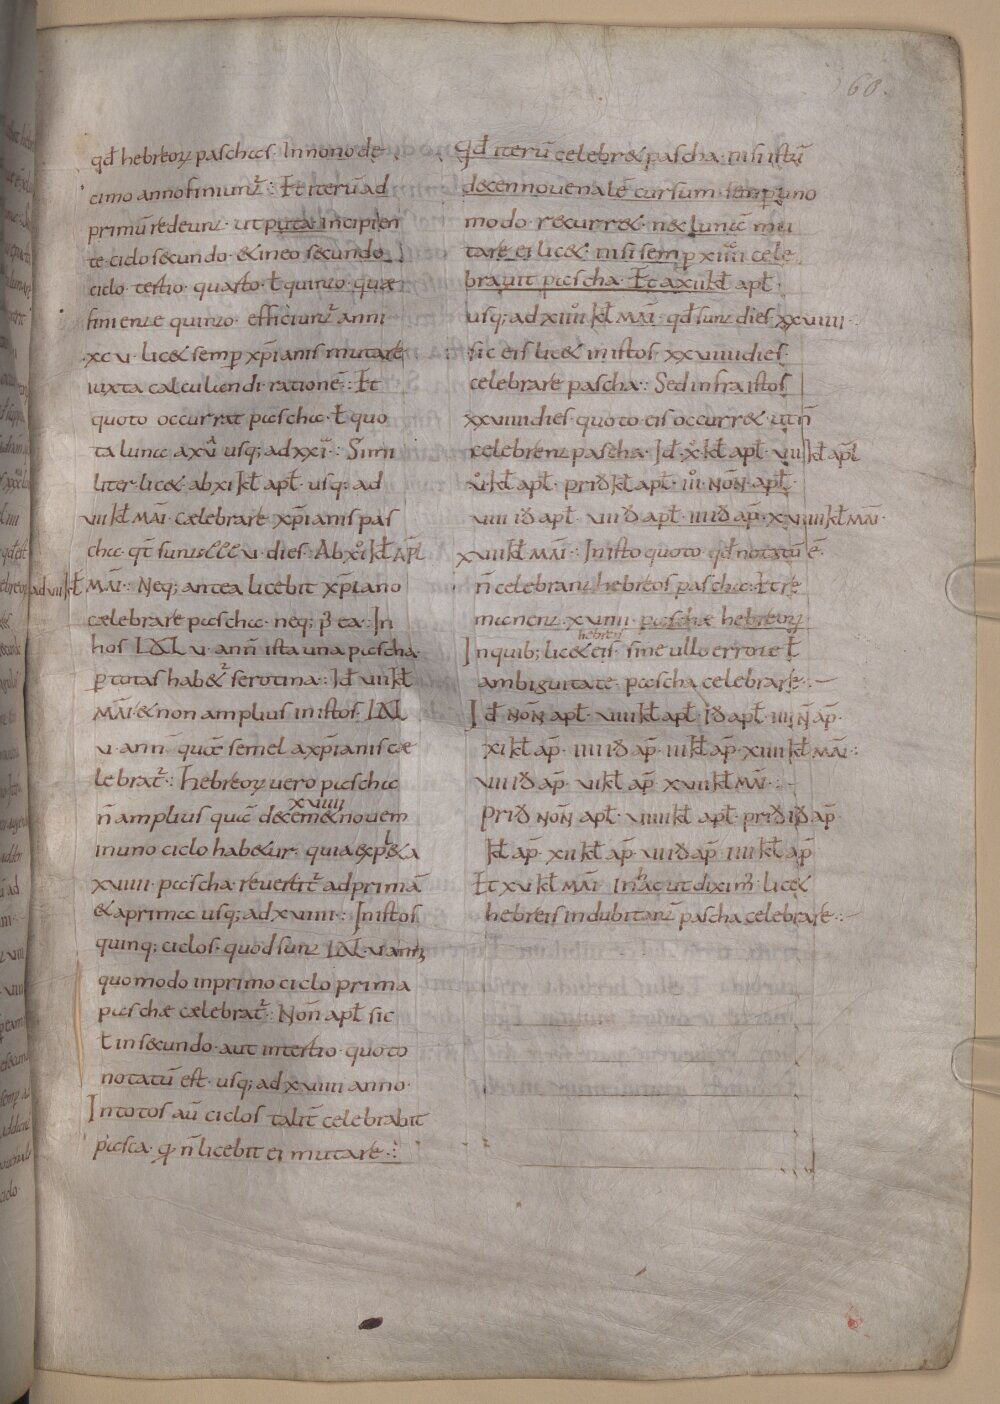 60
qd̄ hebreoꝝ paschas. In nono de
cimo anno finiunt̄ : Et iterū ad
primū redeunt. ut puta incipien
te ciclo secundo. & in eo secundo
ciclo. tertio. quarto. ł quinto. quæ
finiente quinto. efficiunt̄ anni
xcv. lic& semp xp̄ianis mutare
iuxta calculandi rationē : Et
quoto occurrat pascha. ł quo
ta luna a xv usq; ad xxi : Simi
liter lic& ab xi kł apł. usq; ad
vii kł MAI. cælebrare xp̄ianis pas
cha qt̄ sunt xxxv. dies. Ab xi kł apł
ad vii kł MAI : Neq; antea licebit xp̄iano
cælebrare pascha. neq; p̄ ea : In
hos LXL v. ann̄ ista una pascha
p totas hab& serotina : Id vii kł
MAI. & non amplius in istos. LXL
v. ann̄ quæ semel a xp̄ianis cæ
lebrat̄ : hebreoꝝ uero pascha
xviiii
n̄ amplius quā decem & novem
in uno ciclo habetur. quia expl& a
xviiii. pascha. revertit̄ ad primā
& a prima usq; ad xviiii : In istos
quinq; ciclos. quod sunt LXL. v ann̄
quomodo in primo ciclo prima
paschæ cælebrat̄ : Non̄ apł sic
ł in secundo. aut in tertio. quoto
notatū est. usq; ad xviiii anno.
In totos aū ciclos talit̄ celebrabit
pasca. qm n̄ licebit ei mutare :
qd̄ iterū celebr& pascha. nisi istū
decennovenalē cursum. semp uno
modo. recurr&. nec lunā mu
tare ei lic&. nisi semp xiiii cele
brauit pascha. Et a xii kł apł.
usq; ad xiiii kł MAI. qd̄ sunt dies. xxviiii.
sic eis lic& in istos. xxviiii dies.
celebrare pascha : Sed infra istos
xxviiii dies. quoto eis occurr& ut n̄
celebrent pascha. Id x kł apł. vii kł apł
v kł apł. prid kł apł. iii NON apł.
viiii id apł. vii id apł. iiii id ap̄. xviiii kł MAI.
xvii kł MAI : In isto quoto. qd̄ notatū ē.
n̄ celebrant hebreos pascha. Et re
manent. xviiii. paschæ hebreoꝝ
hebreis
In quib; lic& eis. sine ullo errore ł
ambiguitate. pascha celebrare.
Id NON apł. viiii kł apł. Id apł. iiii N̄ ap̄.
xi kł ap̄. iiii id ap̄. iii kł ap̄. xiiii kł MAI :
viii id ap̄. vi kł ap̄ xvii kł MAI.
Prid NON apł. viiii kł apł. prid id ap̄.
kł ap̄. xii kł ap̄ vii id ap̄. iiii kł ap̄
Et xv kł MAI. In hac ut dixim̄. lic&
hebreis indubitant̄ pascha celebrare :